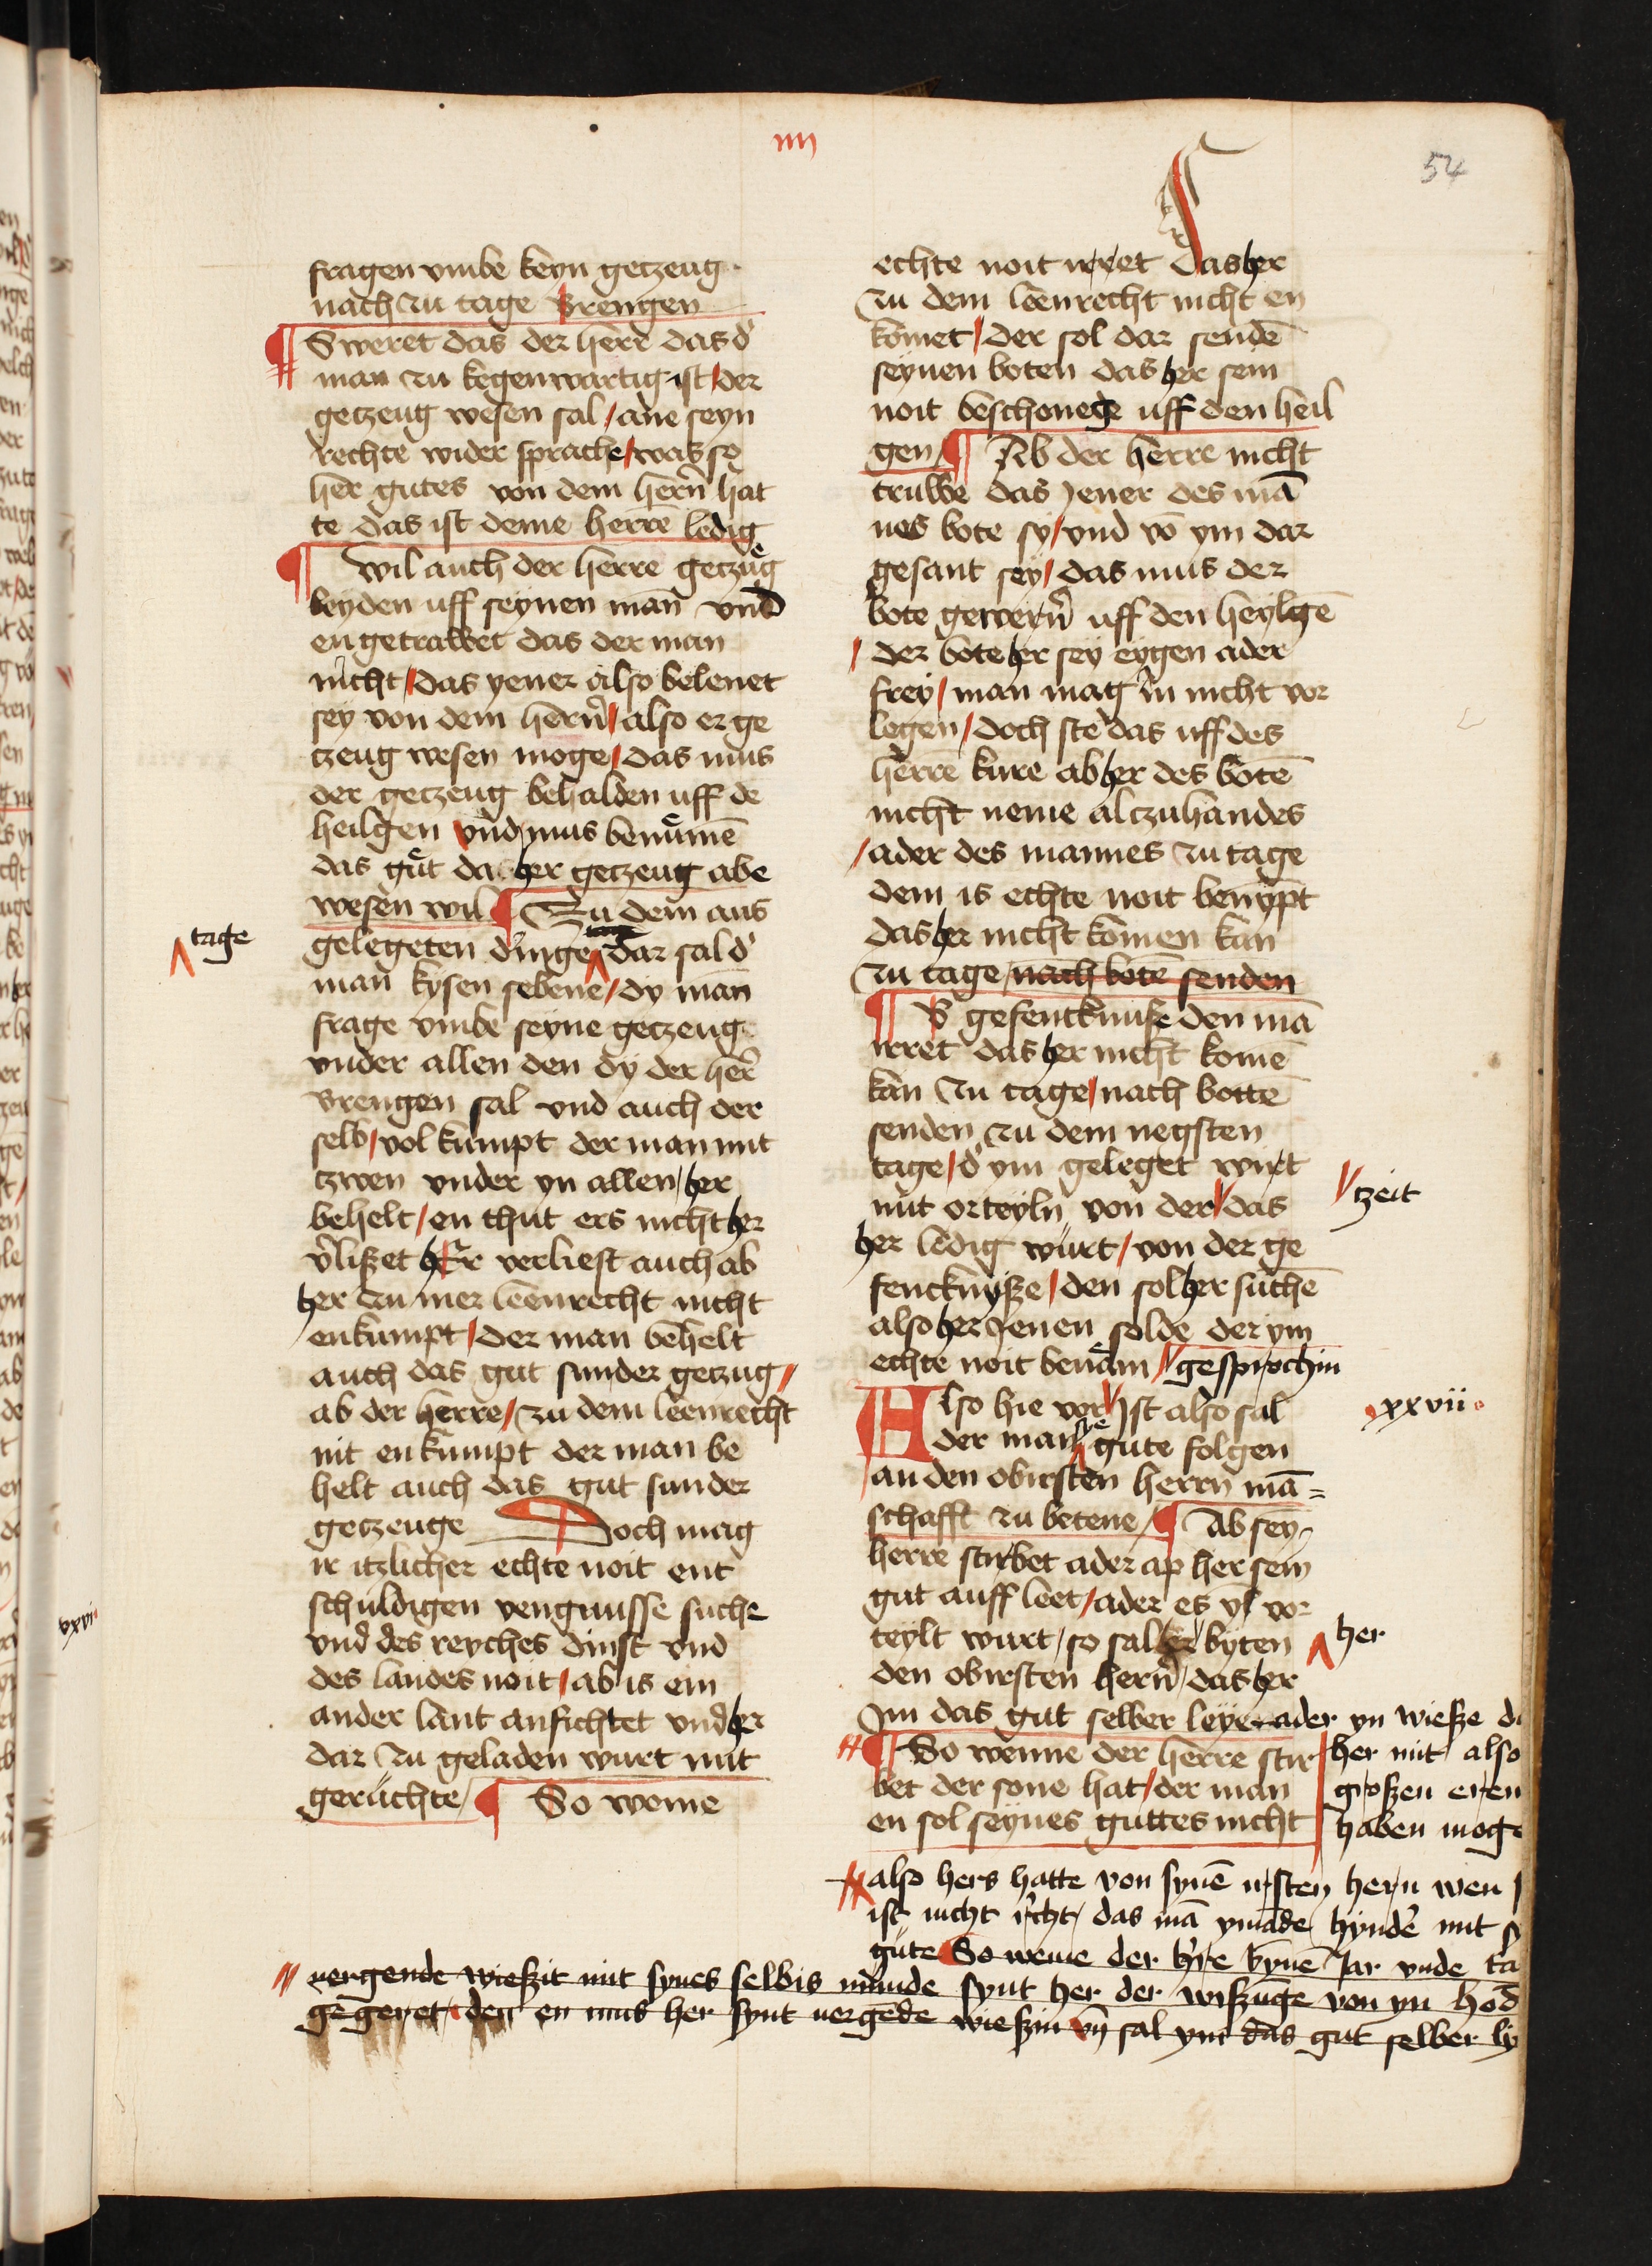 iiii
54
fragen vmbe keyn getzeug
nach zu tage brengen
¶ Sweret das der herre das d'
man zu kegenwartig ist / der
getzeug wesen sal / ane seyn
rechte wider sprache / was so
her gutes von dem hern̄ hat
te das ist deme herrē ledig
¶ Wil auch der herre getzug
leyden uff seynen man vnd
en getrawet das der man
nicht / das yener also belenet
sey von dem hern̄ / also er ge
tzeug wesen moge / das mus
der getzeug behalden uff de
heilgen vnd mus benūmē
das gut das her getzeug abe
wesen wil ¶ Zu dem aus
gelegeten dinge dar sal d'
tage
man kysen sebene / dy man
frage vmbe seyne getzeug
vnder allen den dy der her̄
brengen sal vnd auch der
selb / vol kumpt der man mit
tzwen vnder yn allen / her
behelt / en thut ers nicht her
v'liszet her verliest auch ab
her zu mer leenrecht nicht
enkumpt / der man behelt
auch das gut sunder getzug /
ab der herre / zu dem leenrecht
nit enkumpt der man be
helt auch das gut sunder
getzeuge Doch mag
ir itzlicher echte noit ent
schuldigen vengnusse suche
xxvi
vnd des reyches dinst vnd
des landes noit / ab is ein
ander lant anfichtet vnd her
dar zu geladen wurt mit
geruchte / ¶ So wenne
echte noit irret das her
zu dem leenrecht nicht en
komet / der sol dar sendē
seynen boten das her sein
noit beschonege uff den heil
gen / ¶ Ab der herre nicht
truwe das jener des mā
nes bote sy / vnd vō ym dar
gesant sey / das mus der
bote gewern̄ uff den heylgē
/ der bote her sey eygen ader
frey / man mag in nicht vor
legen / doch ste das uff des
herrē kure ab her des botē
nicht neme altzuhandes
/ ader des mannes zu tage
dem is echte noit benympt
das her nicht komen kan
zu tage / nach botē senden
¶ B gefencknuse den mā
irret das her nicht komē
kan zu tage / nach bottē
senden zu dem negsten
tage / d' ym geleget wirt
mit orteyln von der // das
// tzeit
her ledig wurt / von der ge
fencknysze / den sol her suchē
also her jenen solde der ym
echte noit benam // gesprochin
Also hie vor // ist also sal
xxvii
der man sye gute folgen
an den obirsten herrn mā=
schafft zu betene / ¶ Ab sey
herre stirbet ader ap her sein
gut auff leet / ader es ym vor
teylt wurt / so sal her byten
her
den obirsten hern̄ / das her
Im das gut selber leye ader yn wiesze da
¶ So wenne der herre stir her mit also
bet der sone hat / der man groszen eren
en sol seynes guttes nicht haben moge
also hers hatte von synē irsten hern wen
ist nicht r'cht / das mā ymāde hynd'e mit
gute So wenne der h're bynē Jar vnde ta
vergende wieszit mit synes selbis munde synt her der wiszunge von yn hod
gegeret den en mus her synt vergēde wieszin vn̄ sal ym das gut selber ly